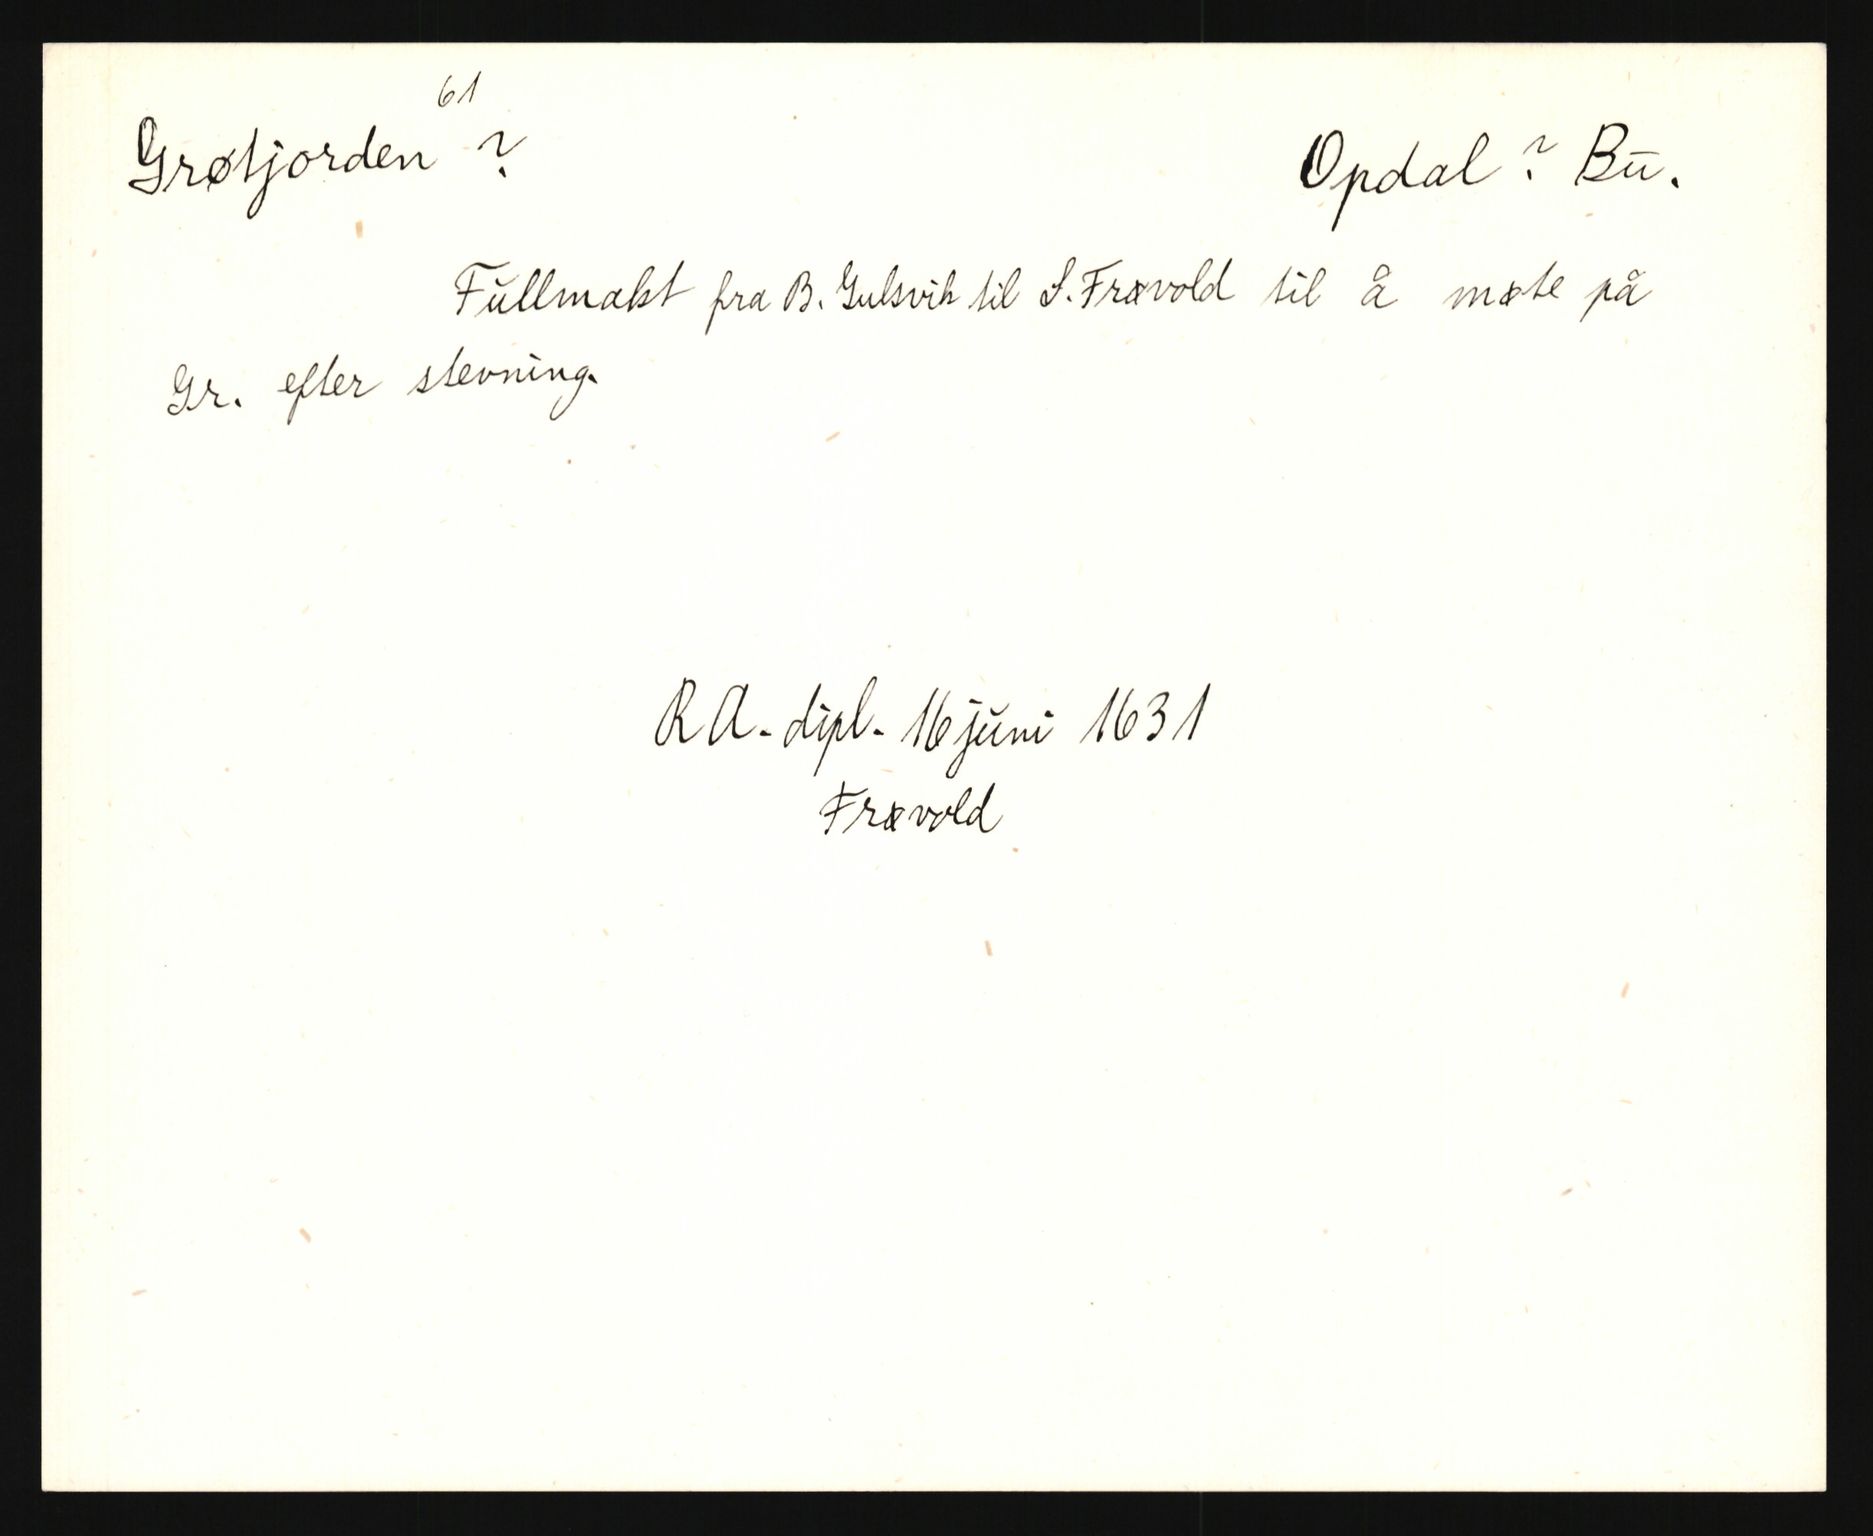 61
Grøtjorden ? Opdal ? Bu.
Fullmakt fra B. Gulsvik til S. Frævold til å møte på
Gr. efter stevning.
RA. dipl. 16 juni 1631
Frævold